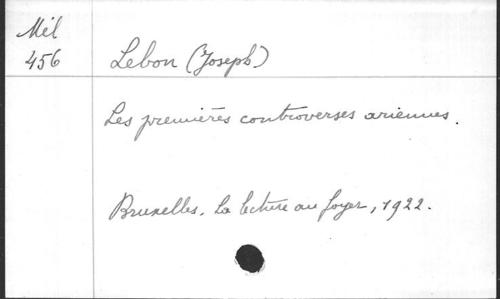 Mél
456
Lebon (Joseph)
Les premières controverses ariennes.
Bruxelles. La lecture au foyer, 1922.